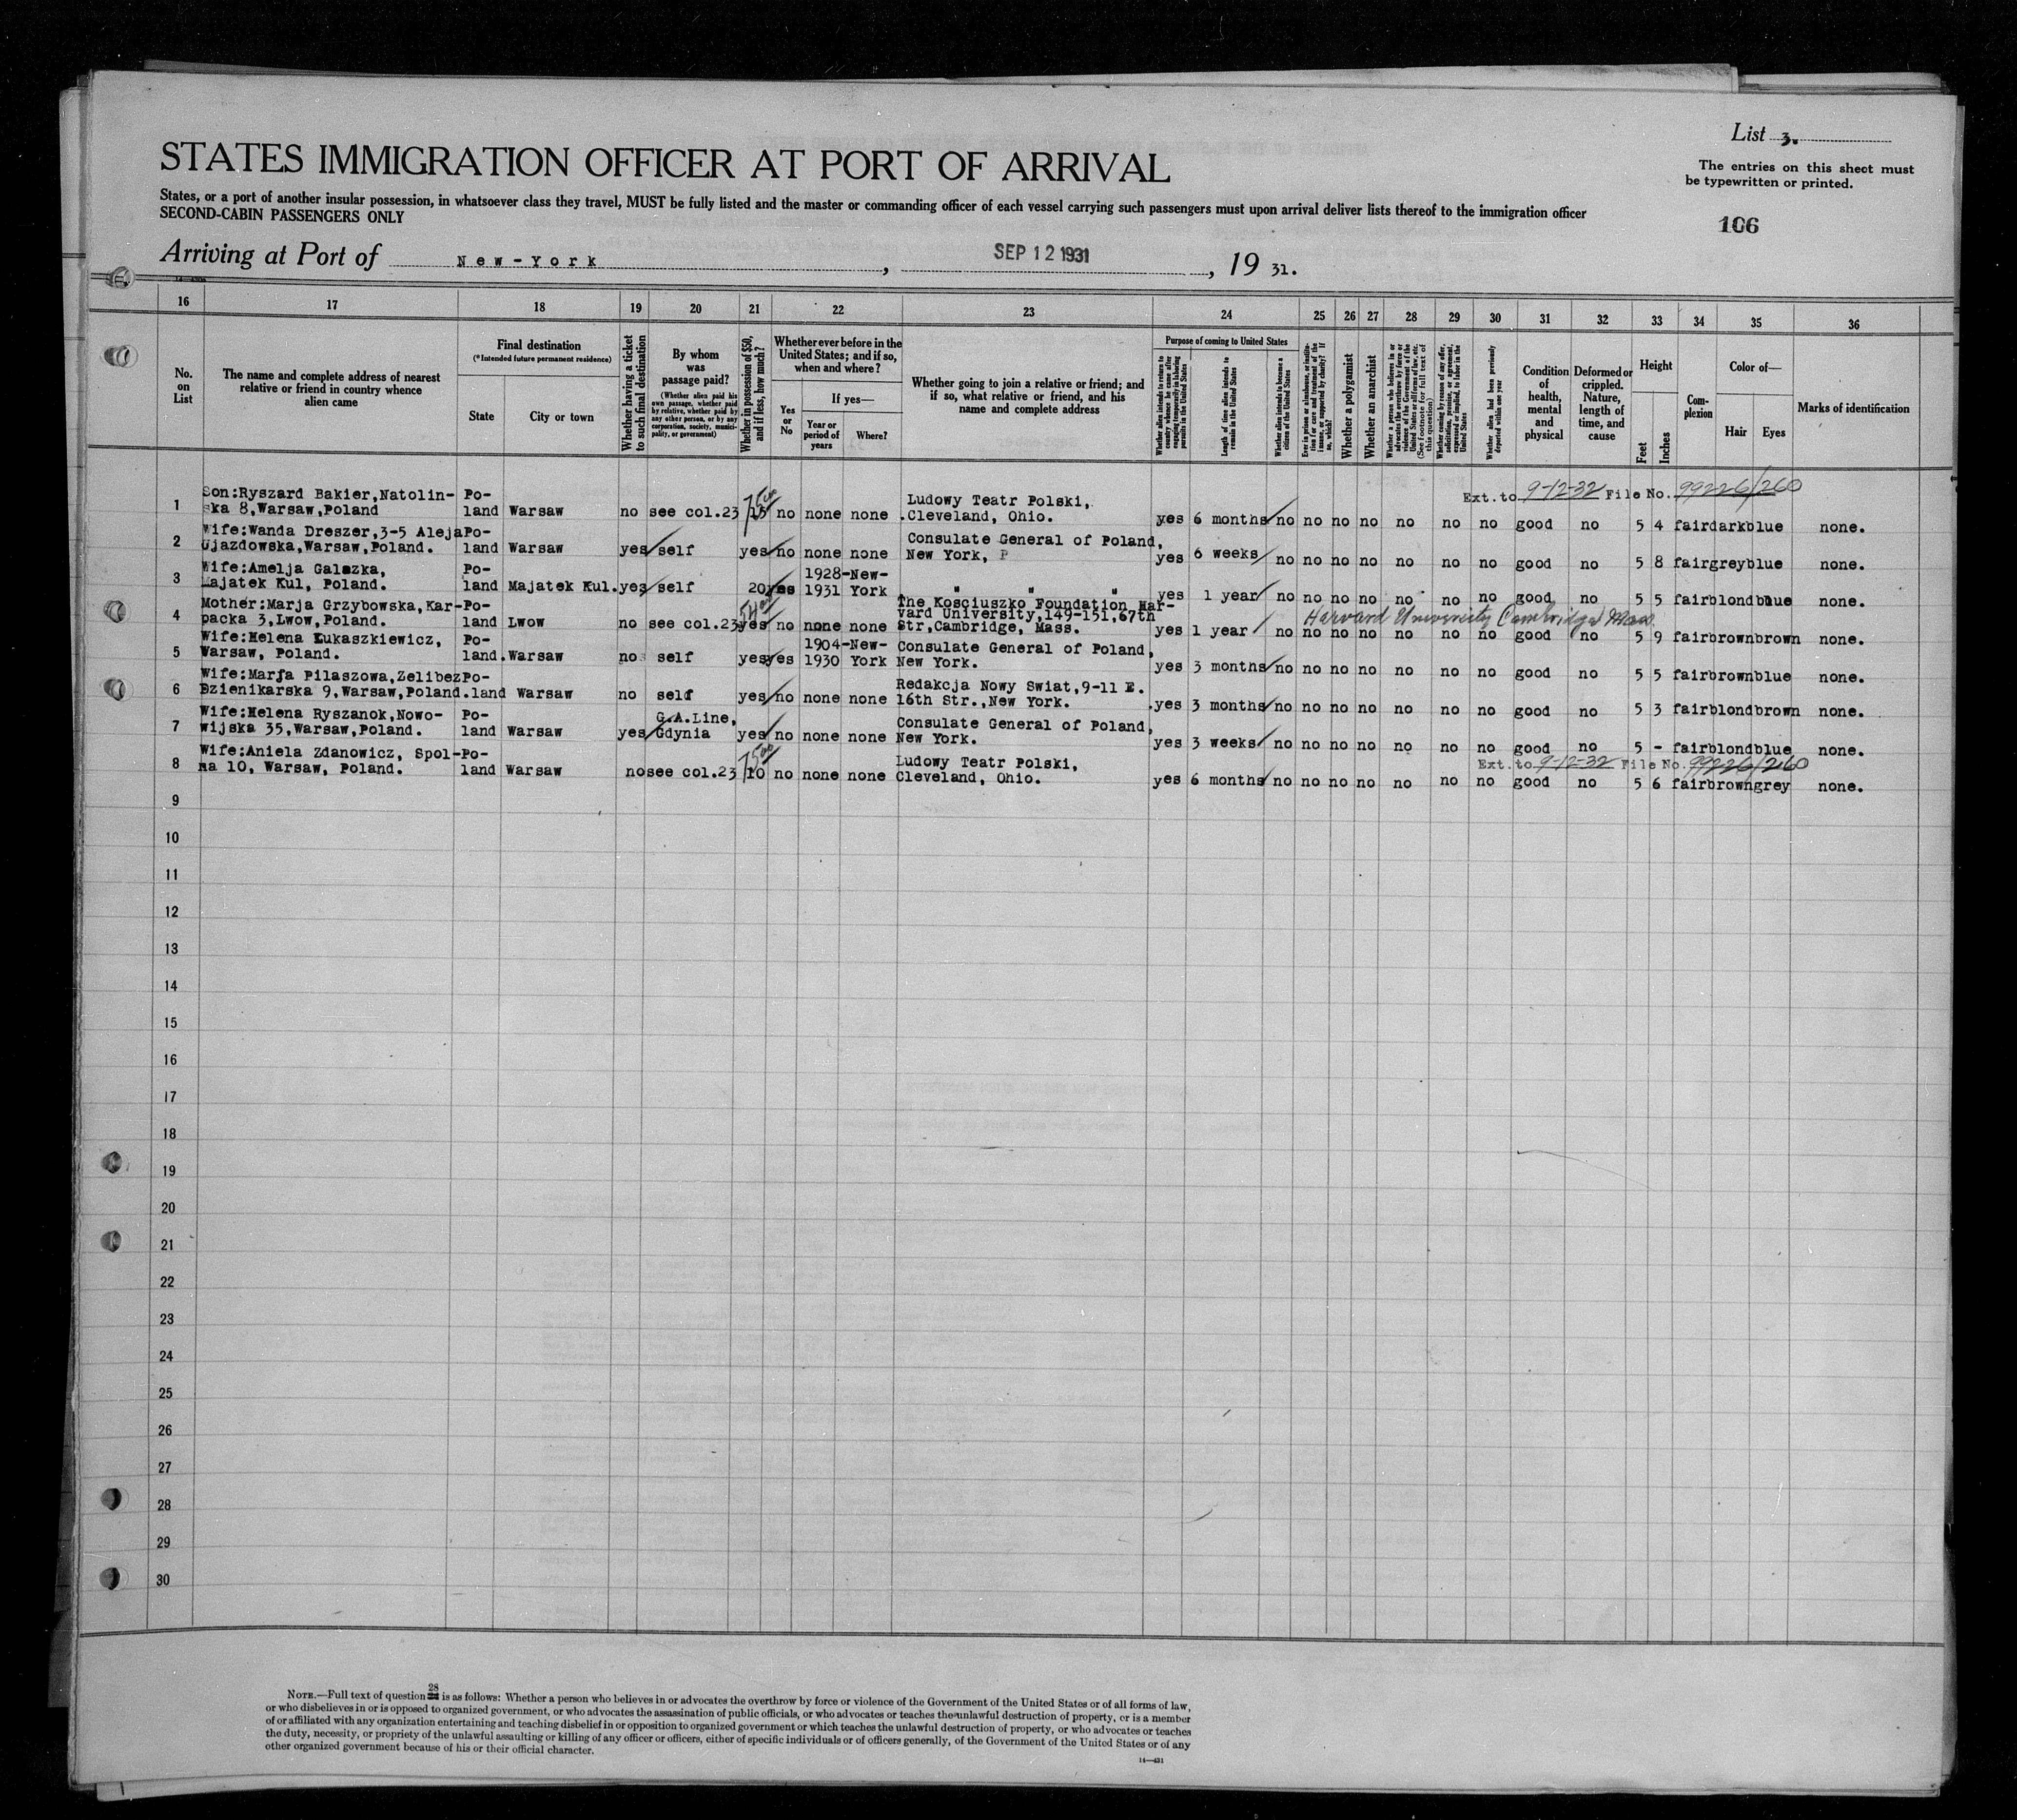 List 3.
STATES IMMIGRATION OFFICER AT PORT OF ARRIVAL
The entries on this sheet must
be typewritten or printed.
States, or a port of another insular possession, in whatsoever class they travel, MUST be fully listed and the master or commanding officer of each vessel carrying such passengers must upon arrival deliver lists thereof to the immigration officer
SECOND-CABIN PASSENGERS ONLY
106
Arriving at Port of New-York, SEP 12 1931, 19 31.
16 17 18 19 20 21 22 23 24 25 26 27 28 29 30 31 32 33 34 35 36
No.
on
List
The name and complete address of nearest
relative or friend in country whence
alien came
Final destination
(*Intended future permanent residence)
State
City or town
Whether having a ticket
to such final destination
By whom
was
passage paid?
(Whether alien paid his
own passage, whether paid
by relative, whether paid by
any other person, or by any
corporation, society, munici-
pality, or government)
Whether in possession of $50,
and if less, how much?
Whether ever before in the
United States; and if so,
when and where?
Yes
or
No
If yes—
Year or
period of
years
Where?
Whether going to join a relative or friend; and
if so, what relative or friend, and his
name and complete address
Purpose of coming to United States
Whether alien intends to return to
country whence he came after
engaging temporarily in laboring
pursuits in the United States
Length of time alien intends to
remain in the United States
Whether alien intends to become a
citizen of the United States
Ever in prison or almshouse, or institu-
tion for care and treatment of the
insane, or supported by charity? If
so, which?
Whether a polygamist
Whether an anarchist
Whether a person who believes in or
advocates the overthrow by force or
violence of the Government of the
United States or all forms of law, etc.
(See footnote for full text of
this question)
Whether coming by reason of any offer,
solicitation, promise, or agreement,
expressed or implied, to labor in the
United States
Whether alien had been previously
deported within one year
Condition
of
health,
mental
and
physical
Deformed or
crippled.
Nature,
length of
time, and
cause
Height
Feet
Inches
Com-
plexion
Color of—
Hair
Eyes
Marks of identification
Ext. to 9-12-32 File No. 99226/260
1 Son:Ryszard Bakier,Natolin- Po- 75 00 Ludowy Teatr Polski,
ska 8,Warsaw,Poland land Warsaw no see col.23 15 no none none .Cleveland, Ohio. yes 6 months no no no no no no no good no 5 4 fair dark blue none.
2 Wife:Wanda Dreszer,3-5 Aleja Po- Consulate General of Poland,
Ujazdowska,Warsaw,Poland. land Warsaw yes self yes no none none New York, P yes 6 weeks no no no no no no no good no 5 8 fair grey blue none.
3 Wife:Amelja Galazka, Po- 1928- New- " " "
Majatek Kul, Poland. land Majatek Kul. yes self 20 yes 1931 York yes 1 year no no no no no no no good no 5 5 fair blond blue none.
4 Mother:Marja Grzybowska,Kar- Po- The Kosciuszko Foundation Har-
packa 3,Lwow,Poland. land Lwow no see col.23 yes no none none vard University,149-151,67th
Str,Cambridge, Mass. yes 1 year no no no no no no no good no 5 9 fair brown brown none.
Harvard University Cambridge Mass.
5 Wife:Helena Łukaszkiewicz, Po- 1904- New- Consulate General of Poland,
Warsaw, Poland. land. Warsaw no self yes yes 1930 York New York. yes 3 months no no no no no no no good no 5 5 fair brown blue none.
6 Wife:Marja Pilaszowa,Zelibez Po- Redakcja Nowy Swiat,9-11 E.
Dzienikarska 9,Warsaw,Poland. land Warsaw no self yes no none none 16th Str.,New York. yes 3 months no no no no no no no good no 5 3 fair blond brown none.
7 Wife:Helena Ryszanok,Nowo- Po- G.A.Line, Consulate General of Poland,
wijska 35,Warsaw,Poland. land Warsaw yes Gdynia yes no none none New York. yes 3 weeks no no no no no no no good no 5 - fair blond blue none.
Ext. to 9-12-32 File No. 99226/260
8 Wife:Aniela Zdanowicz, Spol- Po- 75 00 Ludowy Teatr Polski,
na 10, Warsaw, Poland. land Warsaw no see col.23 10 no none none Cleveland, Ohio. yes 6 months no no no no no no no good no 5 6 fair brown grey none.
9
10
11
12
13
14
15
16
17
18
19
20
21
22
23
24
25
26
27
28
29
30
NOTE.—Full text of question 28 is as follows: Whether a person who believes in or advocates the overthrow by force or violence of the Government of the United States or of all forms of law,
or who disbelieves in or is opposed to organized government, or who advocates the assassination of public officials, or who advocates or teaches the unlawful destruction of property, or is a member
of or affiliated with any organization entertaining and teaching disbelief in or opposition to organized government or which teaches the unlawful destruction of property, or who advocates or teaches
the duty, necessity, or propriety of the unlawful assaulting or killing of any officer or officers, either of specific individuals or of officers generally, of the Government of the United States or of any
other organized government because of his or their official character.
14—431